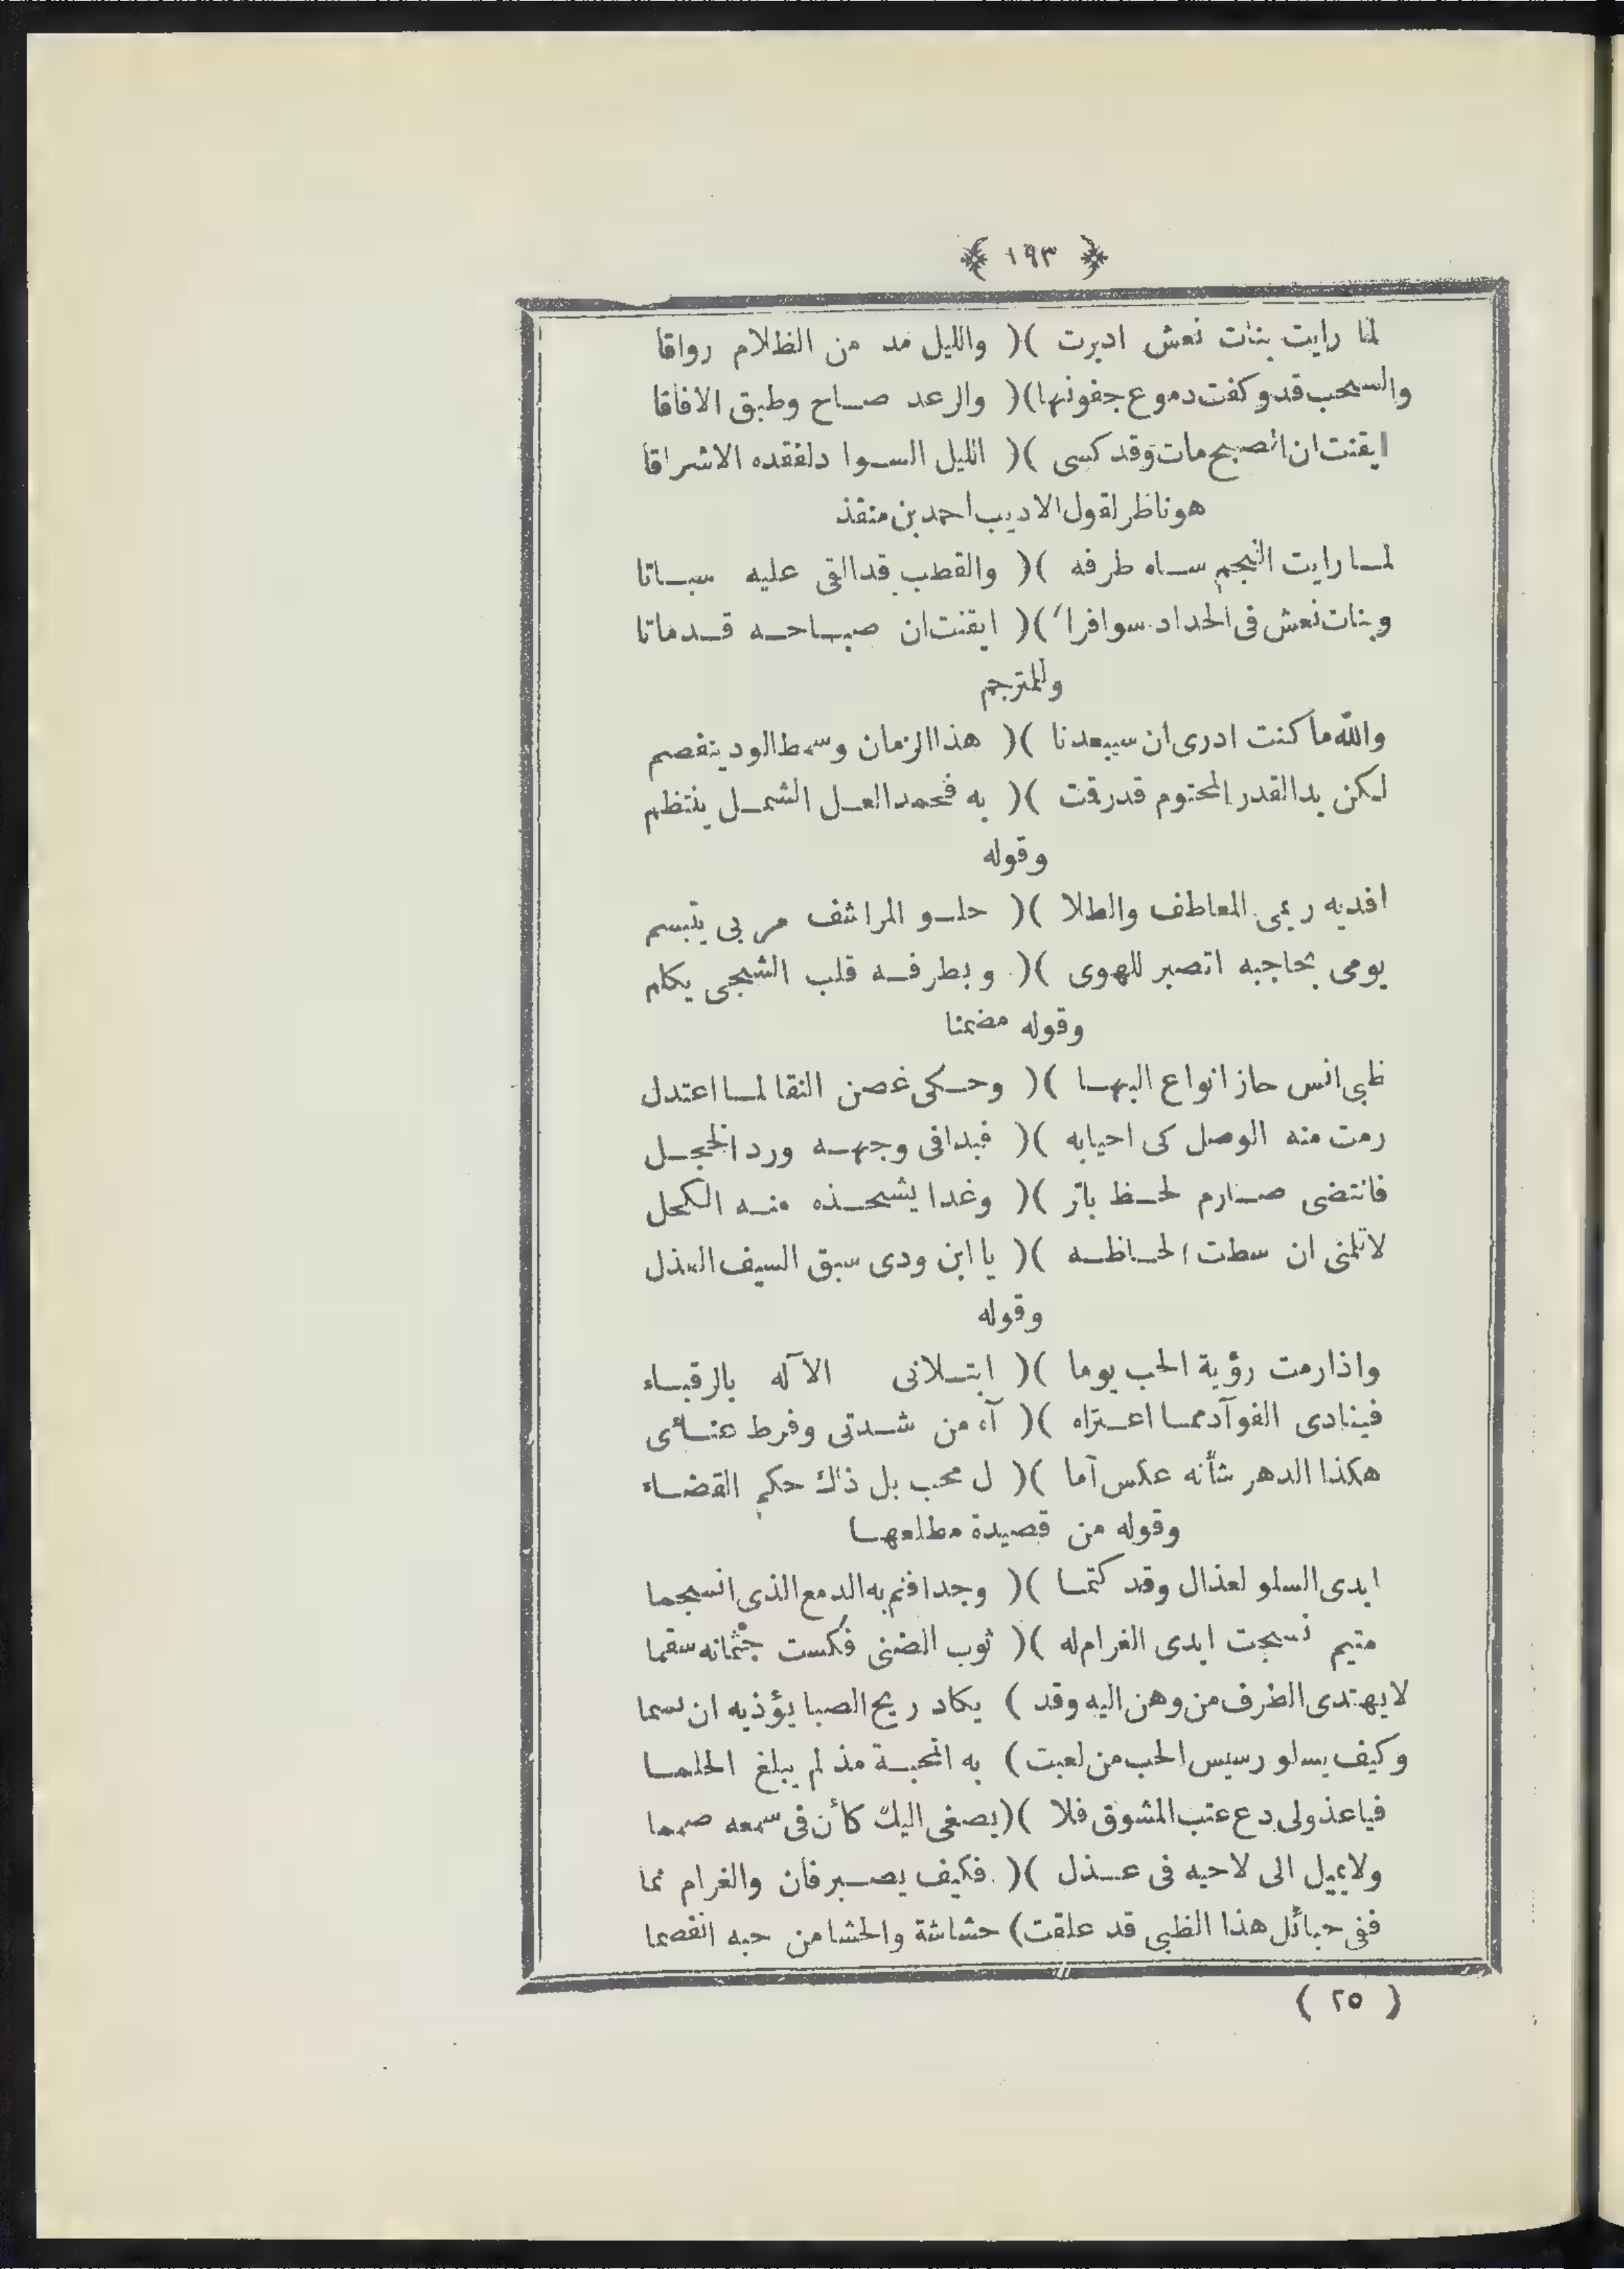 ﴿ ١٩٣ ﴾
لما رايت بنات نعش ادبرت )( والليل مد من الظلام رواقا
والسحب قد وكفت دموع جفونها )( والرعد صاح وطبق الافاقا
ايقنت ان الصبح مات وقد كسى )( الليل السوا دلفقده الاشراقا
هو ناظر لقول الاديب احمد بن منقذ
لما رايت النجم ساه طرفه )( والقطب قد القى عليه سباتا
وبنات نعش فى الحداد سوافرا )( ايقنت ان صباحه قد ماتا
وللمترجم
والله ما كنت ادرى ان سيبعدنا )( هذا الزمان وسمط الود ينفصم
لكن يد القدر المحتوم قد رقت )( به فحمدا لعل الشمل ينتظم
وقوله
افديه ريمى المعاطف والطلا )( حلو المراشف مر بى يتبسم
يومى بحاجبه اتصبر للهوى )( وبطرفه قلب الشجى يكلم
وقوله مضمنا
ظبى انس حاز انواع البها )( وحكى غصن النقا لما اعتدل
رمت منه الوصل كى احيابه )( فبدا فى وجهه ورد الخجل
فانتضى صارم لحظ باتر )( وغدا يشحذه منه الكحل
لا تلمنى ان سطت الحاظه )( يا ابن ودى سبق السيف العذل
وقوله
واذا رمت رؤية الحب يوما )( ابتلانى الآله بالرقباء
فينادى الفوآد مما اعتراه )( آه من شدتى وفرط عنائى
هكذا الدهر شأنه عكس آما )( ل محب بل ذاك حكم القضاء
وقوله من قصيدة مطلعها
ابدى السلو لعذال وقد كتما )( وجدا فنم به الدمع الذى انسجما
متيم نسجت ايدى الغرام له )( ثوب الضنى فكست جثمانه سقما
لا يهتدى الطرف من وهن اليه وقد ) يكاد ريح الصبا يؤذيه ان نسما
وكيف يسلو رسيس الحب من لعبت ) به المحبة مذ لم يبلغ الحلما
فيا عذولى دع عتب المشوق فلا )( يصغى اليك كأن فى سمعه صمما
ولا يميل الى لاحيه فى عذل )( فكيف يصبر فان والغرام نما
ففى حبائل هذا الظبى قد علقت ) حشاشة والحشا من حبه انفصما
( ٢٥ )